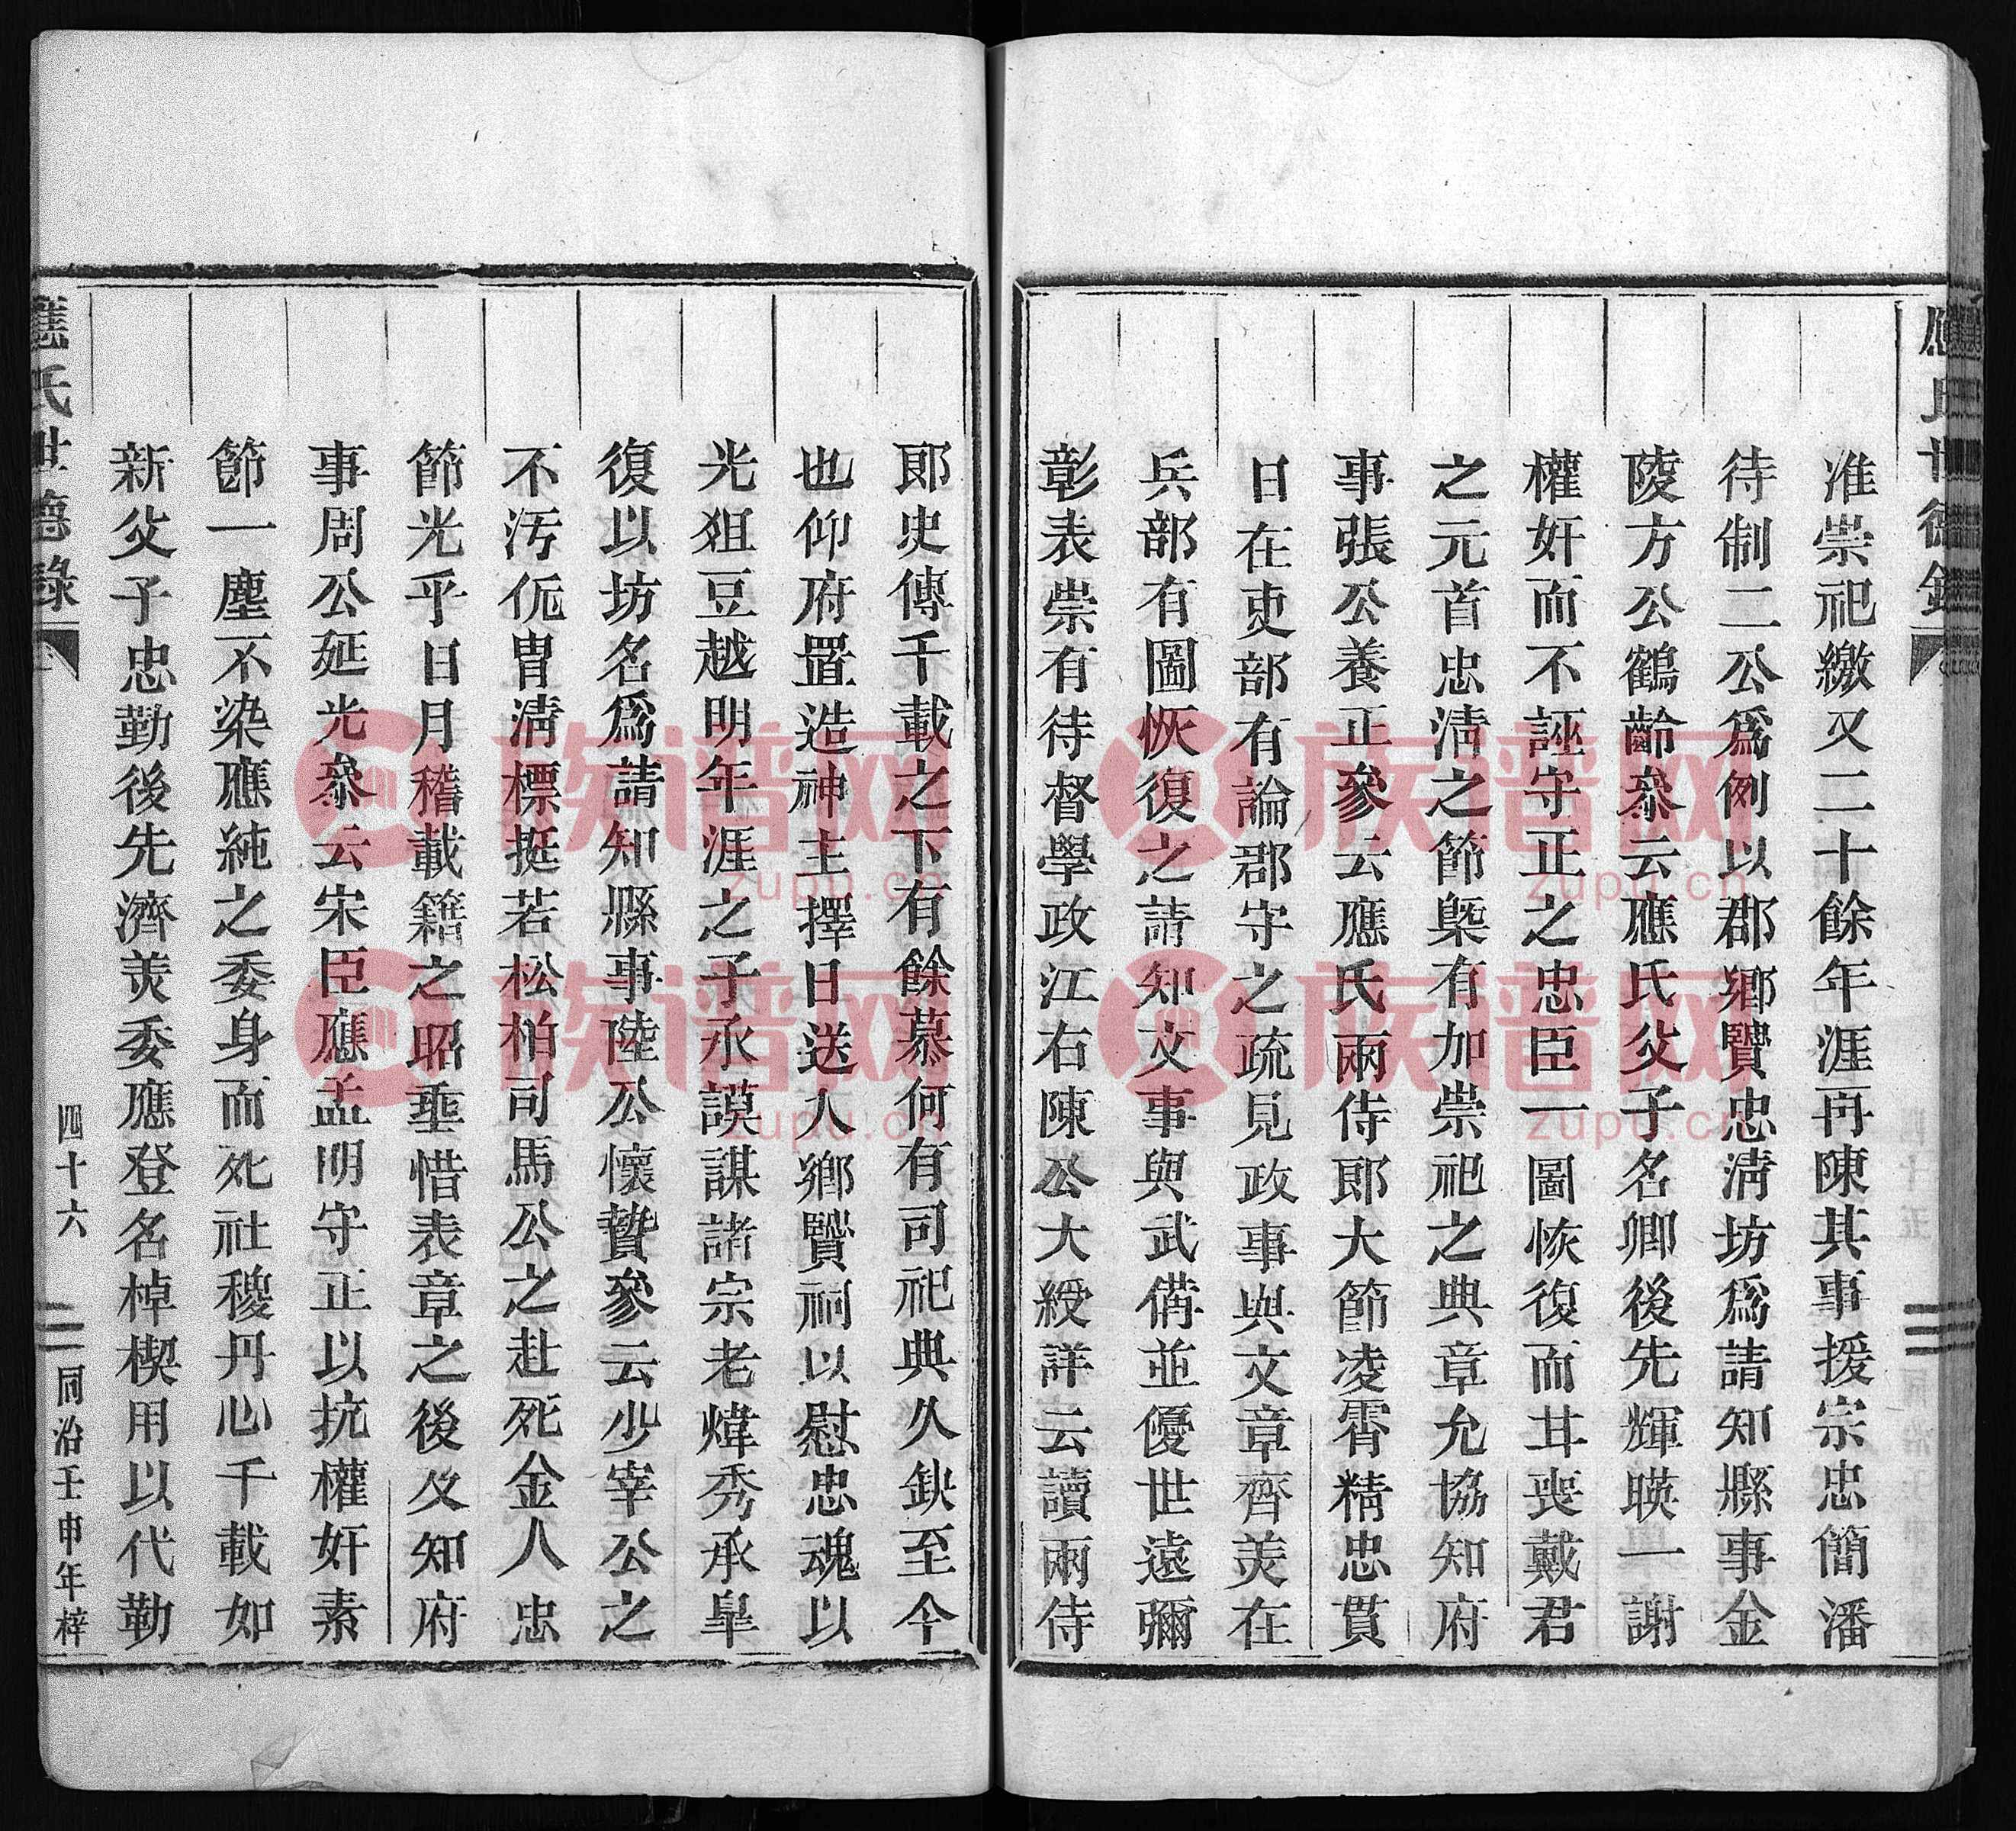 應氏世德錄
准崇祀繳又二十餘年涯再陳其事援宗忠簡潘
待制二公爲例以郡鄉賢忠清坊爲請知縣事金
陵方公鶴齡叅云應氏父子名卿後先輝暎一謝
權奸而不誣守正之忠臣一圖恢復而甘喪戴君
之元首忠清之節槩有加崇祀之典章允協知府
事張公養正參云應氏兩侍郎大節凌霄精忠貫
日在吏部有論郡守之疏見政事與文章齊美在
兵部有圖恢復之請知文事與武備並優世遠彌
彰表崇有待督學政江右陳公大綬詳云讀兩侍
郎史傳千載之下有餘慕何有司祀典久缺至今
也仰府置造神主擇日送入鄉賢祠以慰忠魂以
光俎豆越明年涯之子承謨謀諸宗老煒秀承臯
復以坊名爲請知縣事陸公懷贄參云少宰公之
不汚侂冑淸標挺若松柏司馬公之赴死金人忠
節光乎日月稽載籍之昭垂惜表章之後及知府
事周公延光叅云宋臣應孟明守正以抗權奸素
節一塵不染應純之委身而死社稷丹心千載如
新父子忠勤後先濟美委應登名棹楔用以代勒
應氏世德錄
四十六
同治壬申年梓
族谱网
zupu.cn
族谱网
zupu.cn
族谱网
zupu.cn
族谱网
zupu.cn